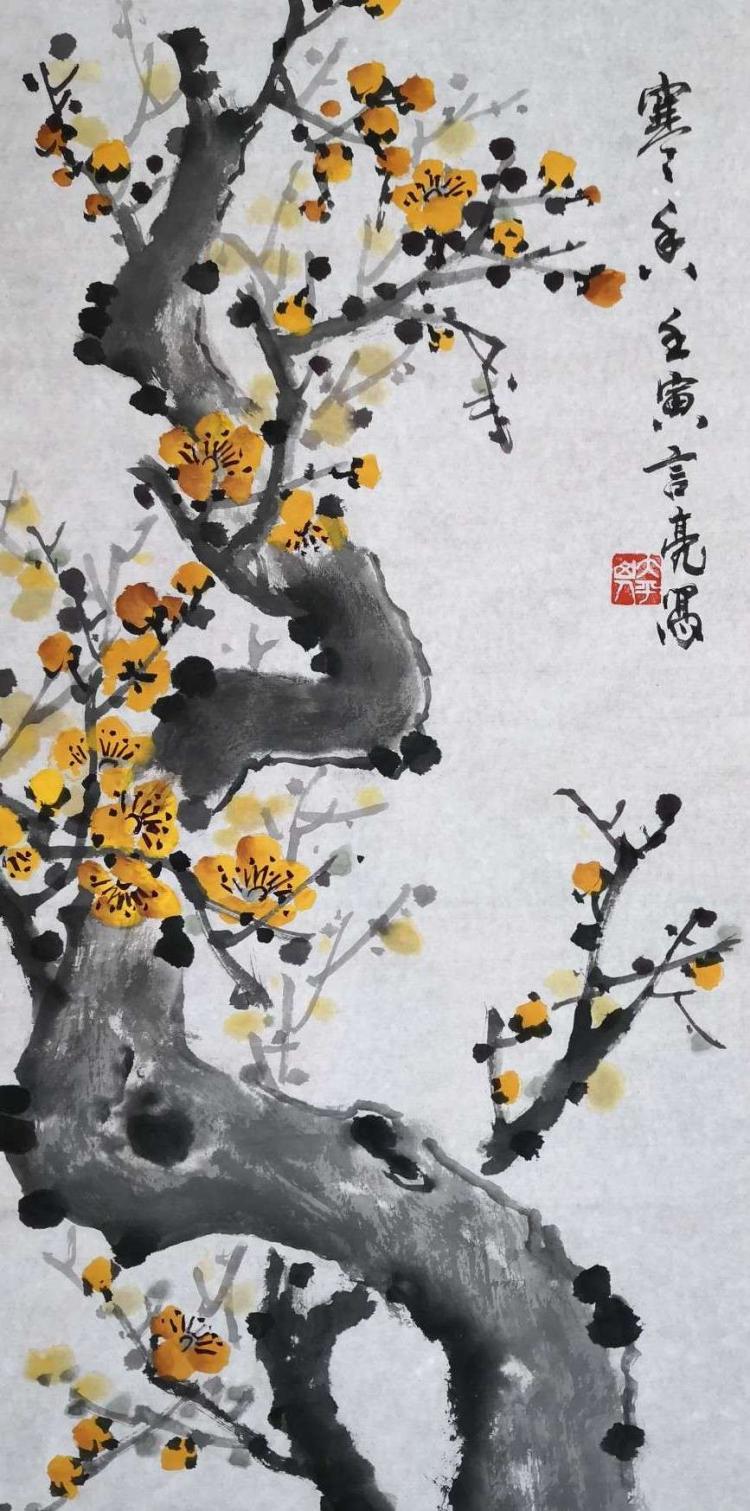 寒香 壬寅 言亮寫